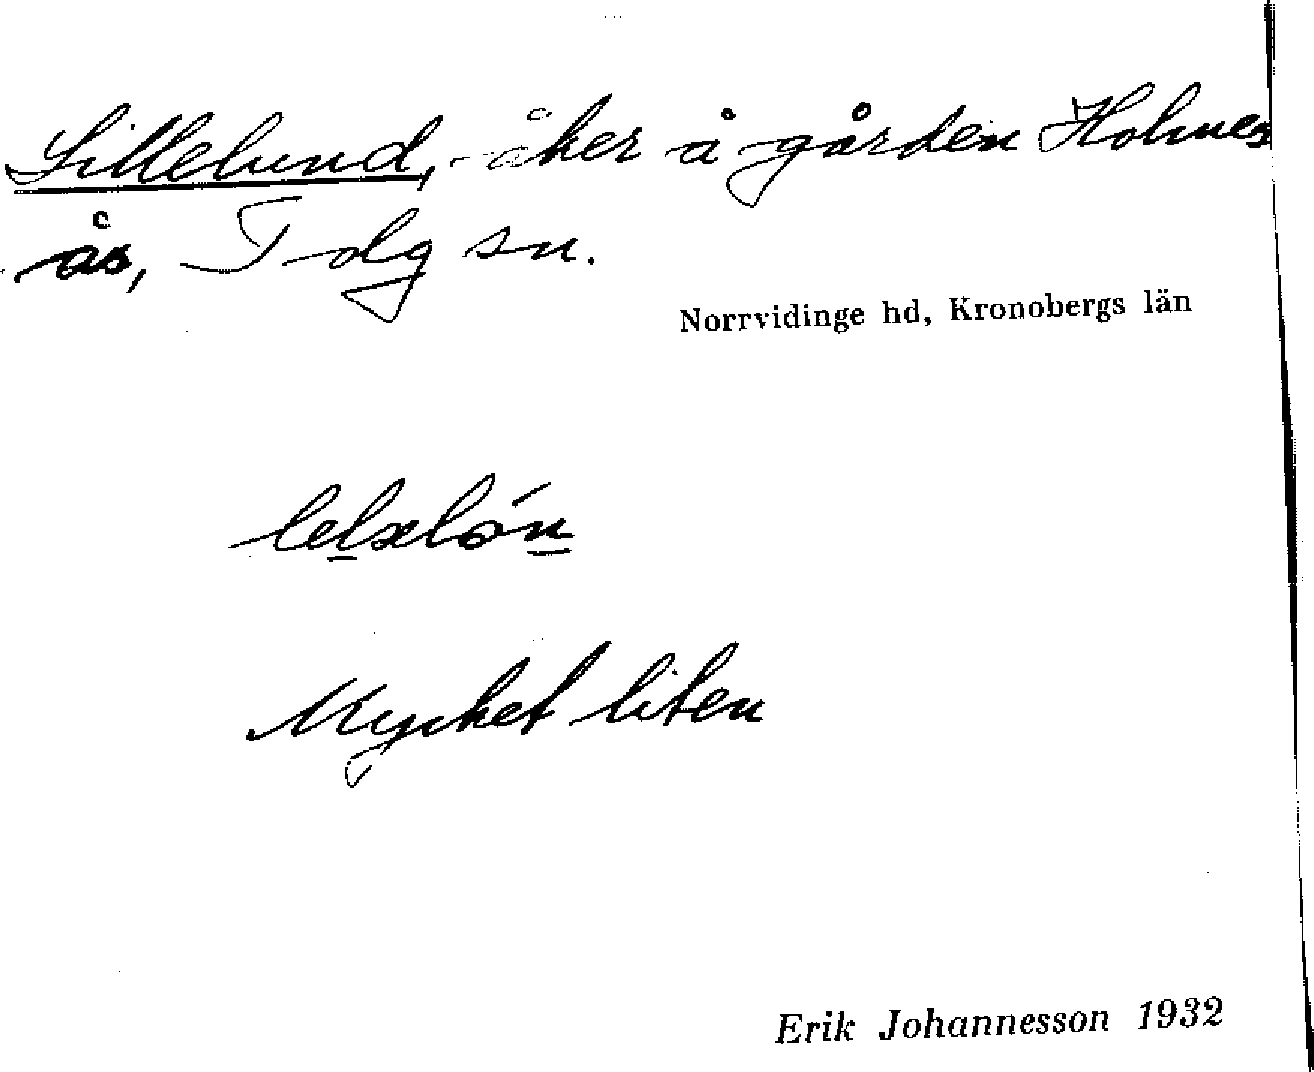 Lillelund, åker å gården Holmes
ås, Tolg sn.
Norrvidinge hd, Kronobergs län
Mycket liten
Erik Johannesson 1932